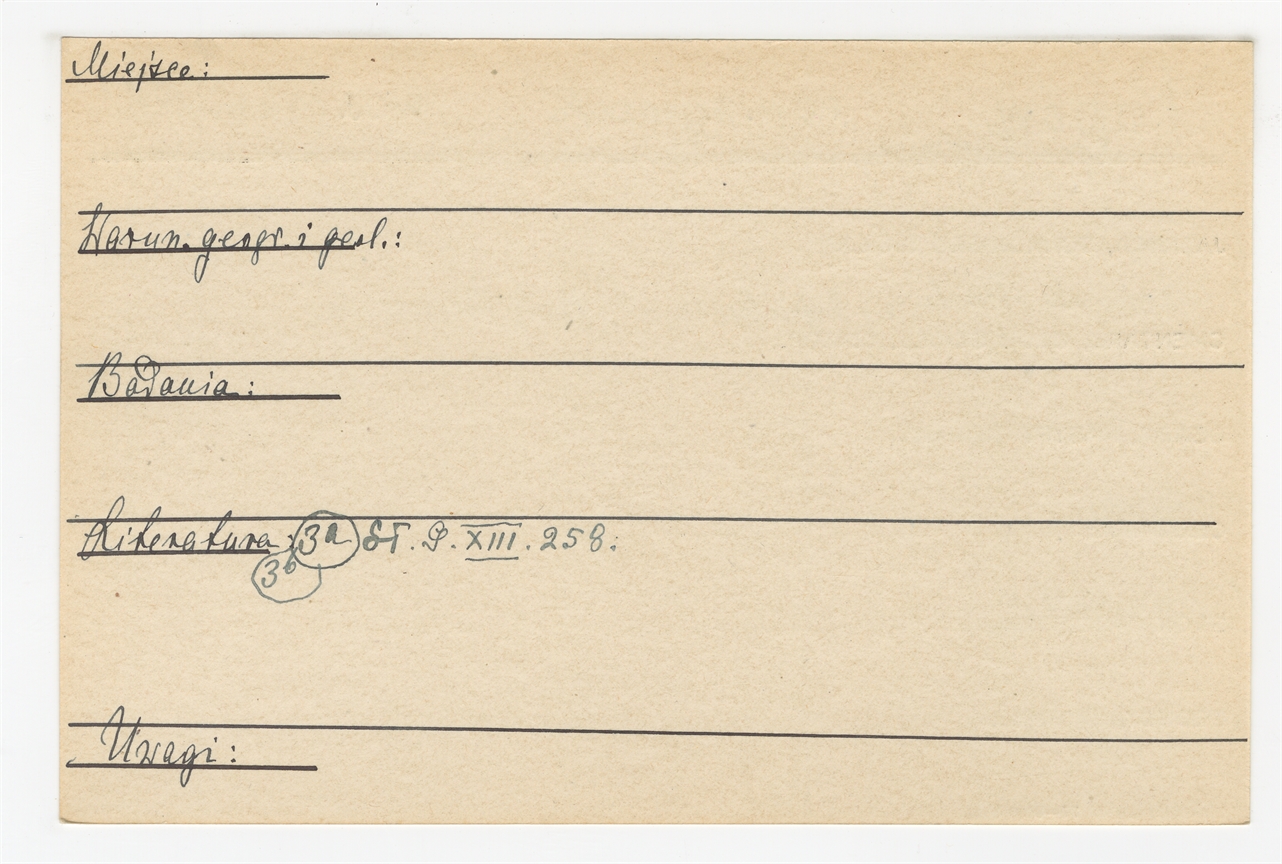 Miejsce:
Warun. geogr. i geol.:
Badania:
Literatura: 3a ST. P. XIII. 258.
3b
Uwagi: